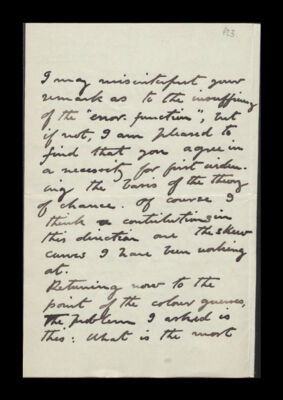 I may misinterpret your
remark as to the insufficiency
of the "error-function", but
if not, I am pleased to
find that you agree in
a necessity for first widen-
ing the basis of the theory
of chance. Of course I
think contributions in
this direction are the skew
curves I have been working
at.
Returning now to the
point of the colour guesses,
the problem I asked is
this: What is the most